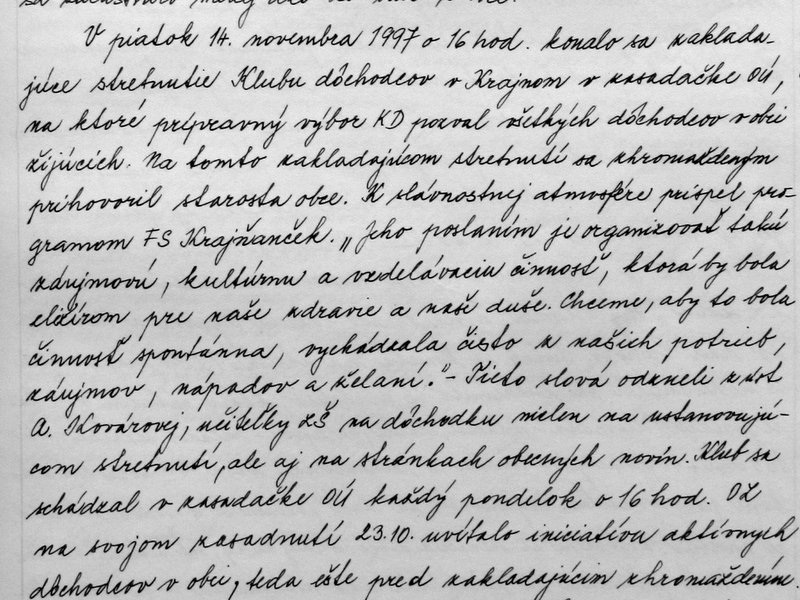 V piatok 14. novembra 1997 o 16 hod. konalo sa zaklada-
júce stretnutie Klubu dôchodcov v Krajnom v zasadačke OÚ,
na ktoré prípravný výbor KD pozval všetkých dôchodcov v obci
žijúcich. Na tomto zakladajúcom stretnutí sa zhromaždeným
prihovoril starosta obce. K slávnostnej atmosfére prispel pro-
gramom FS Krajňanček. „Jeho poslaním je organizovať takú
záujmovú, kultúrnu a vzdelávaciu činnosť, ktorá by bola
elixírom pre naše zdravie a naše duše. Chceme, aby to bola
činnosť spontánna, vychádzala čisto z našich potrieb,
záujmov, nápadov a želaní." - Tieto slová odzneli z úst
A. Kovárovej, učiteľky ZŠ na dôchodku nielen na ustanovujú-
com stretnutí, ale aj na stránkach obecných novín. Klub sa
schádzal v zasadačke OÚ každý pondelok o 16 hod. OZ
na svojom zasadnutí 23.10. uvítalo iniciatívu aktívnych
dôchodcov v obci, teda ešte pred zakladajúcim zhromaždením.